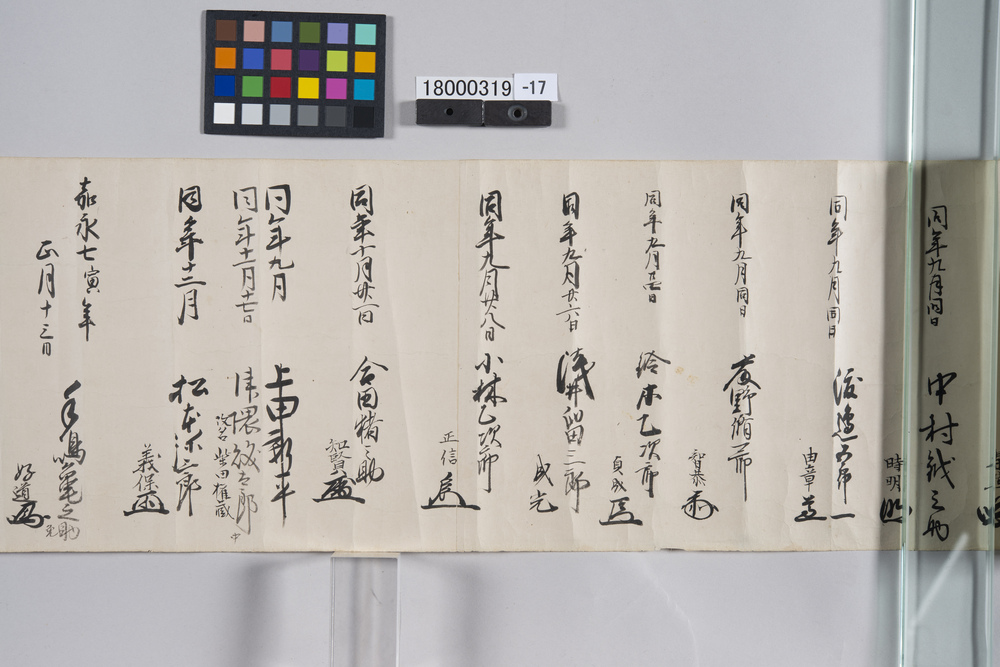 18000319 -17
同年九月同日
中村鉞之助
時明
同年九月同日
渡邉五郎一
由章
同年九月同日
萩野脩一郎
智恭
同年九月廿七日
鈴木乙次郎
貞成
同年九月廿六日
浅井留三郎
成光
同年九月廿八日
小林乙次郎
正信
同年十月廿一日
合田楮之助
知賢
同年九月
上田新平
同年十一月十七日
津隈敏太郎
改名 柴田権蔵
同年十二月
松本源六郎
義保
嘉永七寅年
正月十三日
手嶋亀之助
好道